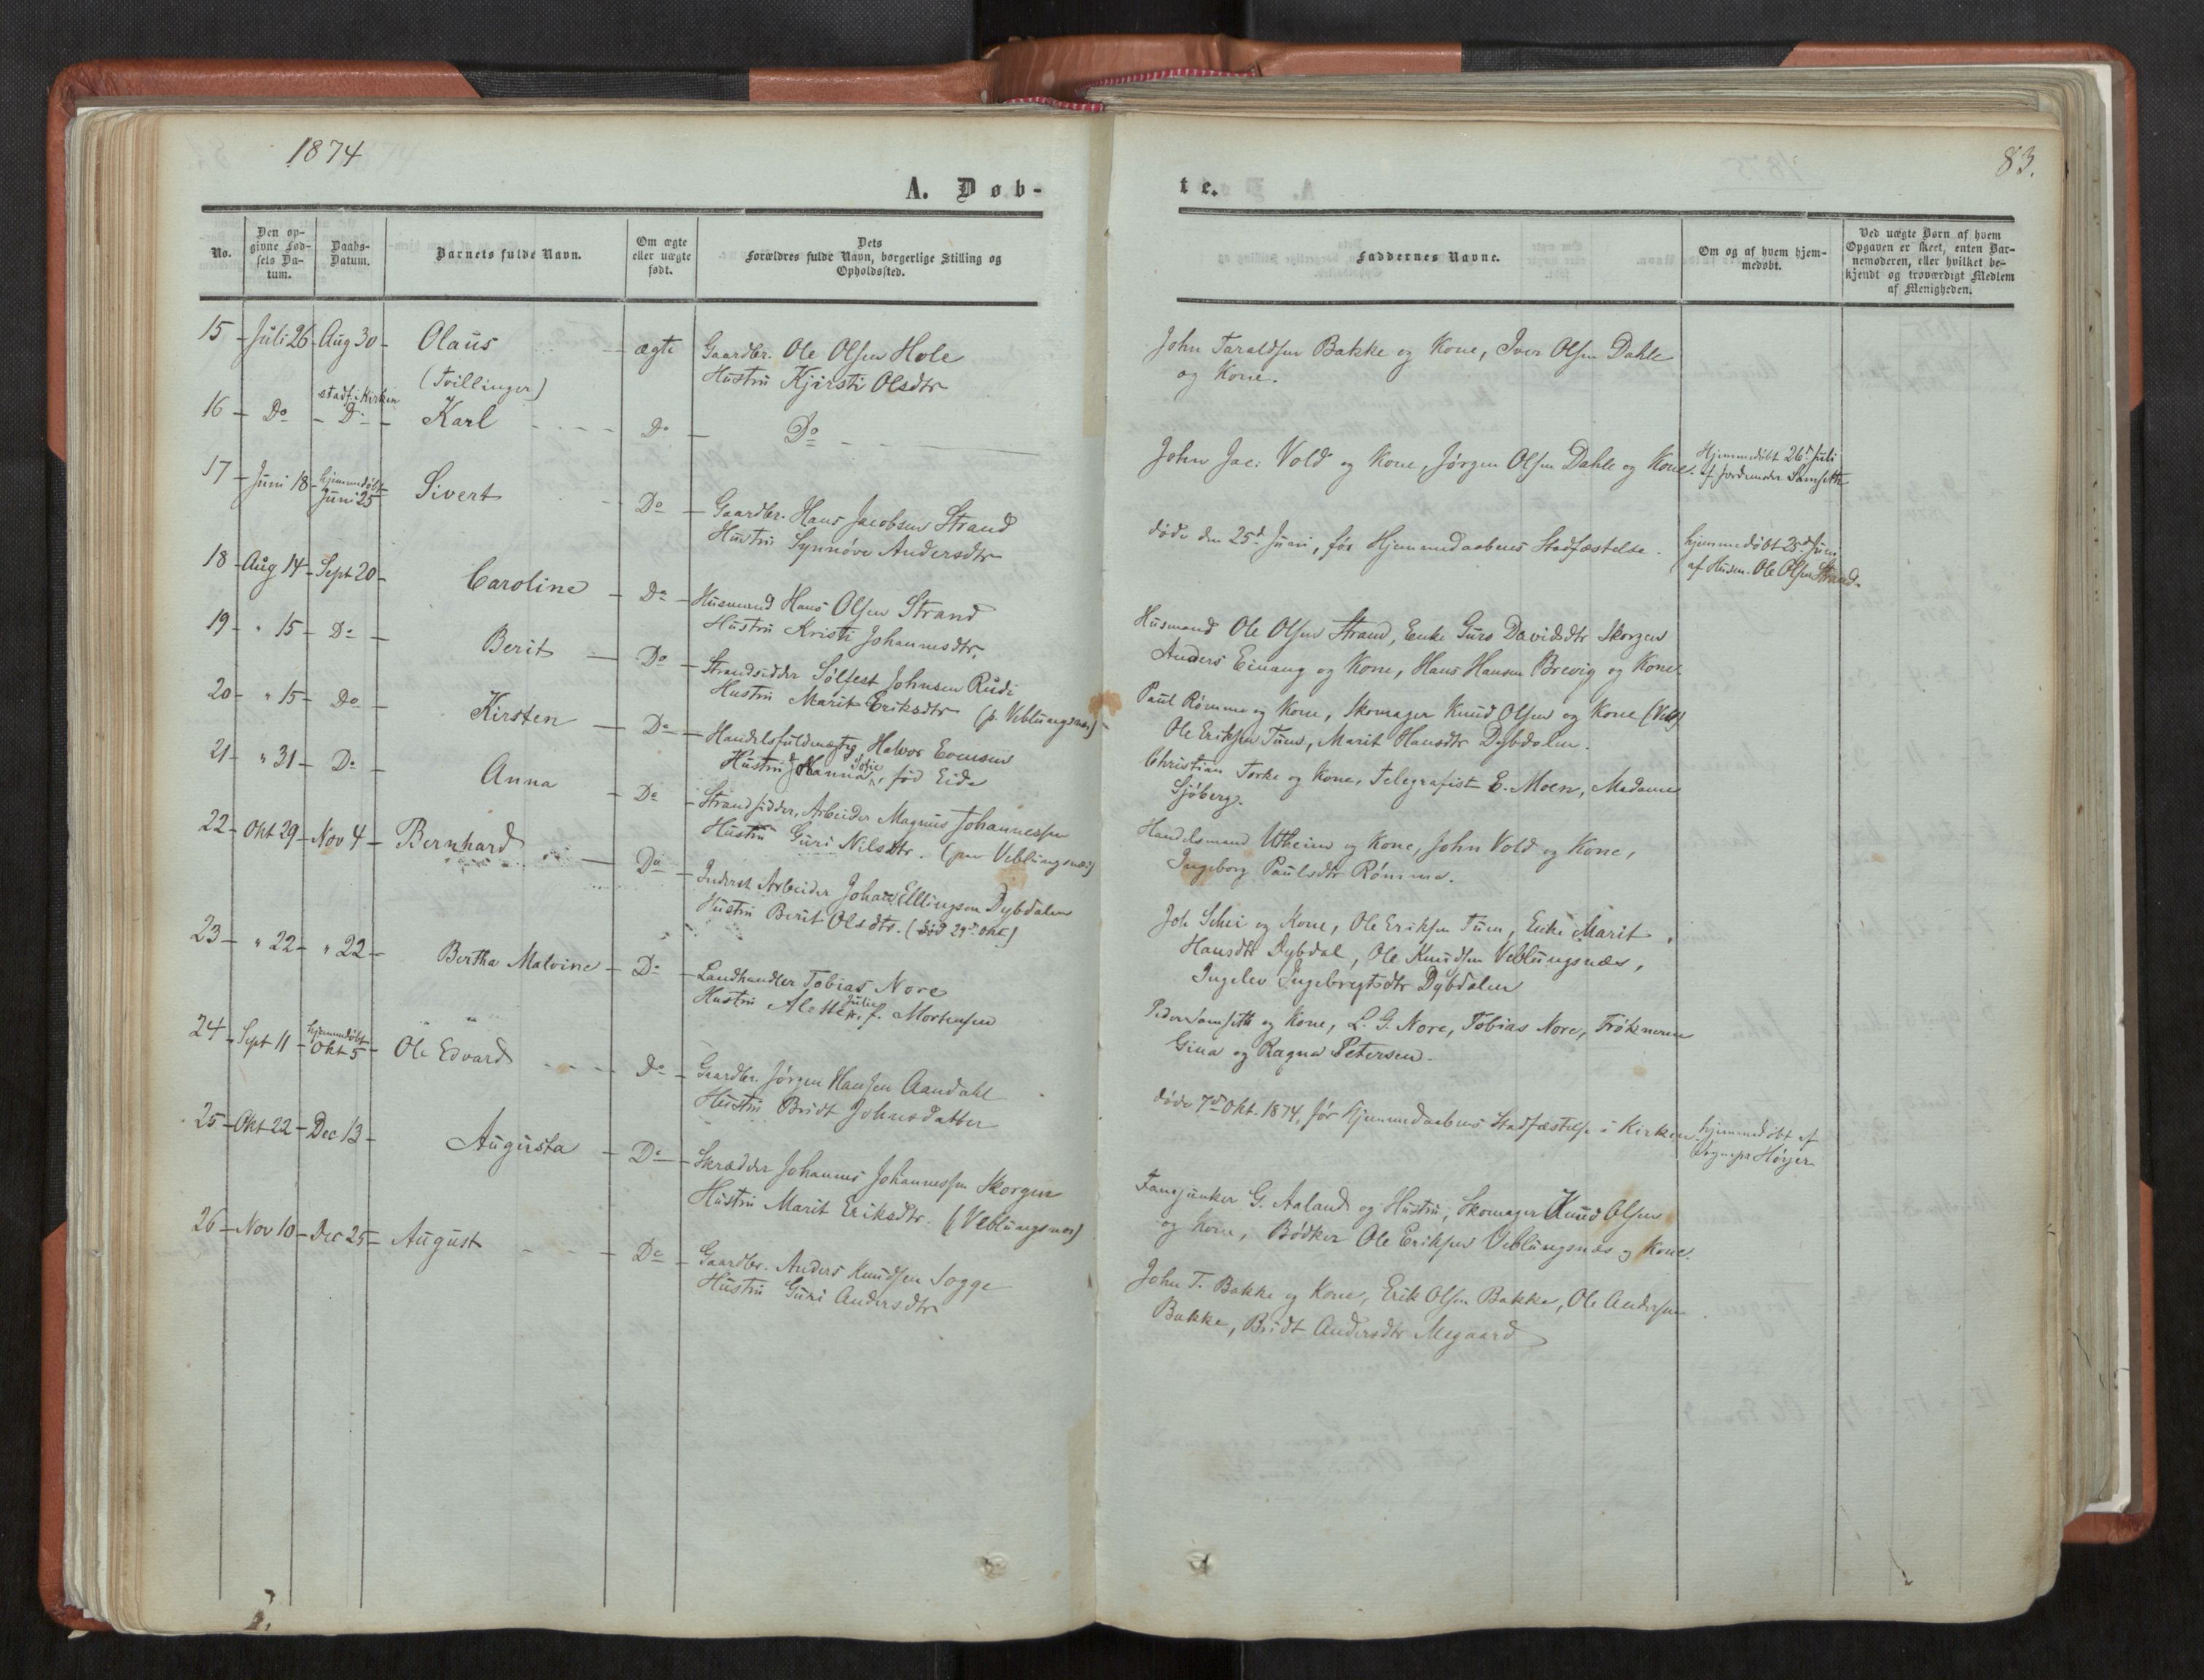 1874
A. Døb-
No.
Den op-
givne Fød-
sels Da-
tum.
Daabs-
Datum.
Barnets fulde Navn.
Om ægte
eller uægte
født.
Dets
Forældres fulde Navn, borgerlige Stilling og
Opholdssted.
15 - Juli 26 - Aug 30 - Olaus - ægte Gaardbr. Ole Olsen Hole
Hustru Kjirsti Olsdtr
(Tvillinger)
stadf. i Kirken
16 - Do - Do - Karl - - - - Do - Do - -
17 - Juni 18 - hjemmedøbt
Juni 25 Sivert - Do - Gaardbr. Hans Jacobsen Strand
Hustru Synnøve Andersdtr
18 - Aug 14 - Sept 20 - Caroline - Do - Husmand Hans Olsen Strand
Hustru Kristi Johannesdtr.
19 - " 15 - Do - Berit - Do - Strandsidder Sölfest Johnsen Rudi
Hustru Marit Eriksdtr (p. Veblungsnæs)
20 - " 15 - Do - Kirsten - Do - Handelsfuldmægtig Halvor Evensen
Hustru Johanna Sofie, fød Eide
21 - " 31 - Do - Anna - Do - Strandsidder, Arbeider Magnus Johannessen
Hustru Guri Nilsdtr. (paa Veblungsnæs)
22 - Okt 29 - Nov 4 - Bernhard - Do - Inderst Arbeider Johan Ellingsen Dybdalen
Hustru Berit Olsdtr. (død 29d Okt)
23 - " 22 - " 22 - Bertha Malvine - Do - Landhandler Tobias Nore
Hustru Alette Julie, f. Mortensen
24 - Sept 11 - hjemmedøbt
Okt 5 - Ole Edvard - - - - Do - Gaardbr. Jørgen Hansen Aandahl
Hustru Bridt Johnsdatter
25 - Okt 22 - Dec 13 - Augusta - Do - Skrædder Johannes Johannessen Skorgen
Hustru Marit Eriksdtr. (Veblungsnæs)
26 - Nov 10 - Dec 25 - August - - - Do - Gaardbr. Anders Knudsen Sogge
Hustru Guri Andersdtr
83.
te.
Faddernes Navne.
Om og af hvem hjem-
medøbt.
Ved uægte Børn af hvem
Opgaven er skeet, enten Bar-
nemoderen, eller hvilket be-
kjendt og troværdigt Medlem
af Menigheden.
John Taraldsen Bakke og Kone, Iver Olsen Dahle
og Kone.
John Jac. Vold og Kone, Jørgen Olsen Dahle og Kone.
Hjemmedøbt 26d Juli
af Jordemoder Samseth
døde den 25d Juni, før Hjemmedaabens Stadfæstelse.
hjemmedøbt 25d Juni
af Husm. Ole Olsen Strand.
Husmand Ole Olsen Strand, Enke Guro Davidsdtr Skorgen
Anders Einang og Kone, Hans Hansen Brevig og Kone
Paul Rømme og Kone, Skomager Knud Olsen og Kone (Vebl)
Ole Eriksen Tuen, Marit Hansdtr Dybdalen.
Christian Torke og Kone, Telegrafist E. Moen, Madame
Sjöberg.
Handelsmand Utheim og Kone, John Vold og Kone,
Ingeborg Paulsdtr Rømme.
Joh. Schei og Kone, Ole Eriksen Tuen, Enke Marit
Hansdtr Dybdal, Ole Knudsen Veblungsnæs,
Ingelev Ingebrigtsdtr Dybdalen
Peder Samseth og Kone, L. G. Nore, Tobias Nore, Frøknerne
Gina og Ragna Petersen.
døde 7d Okt. 1874, før Hjemmedaabens Stadfæstelse i Kirken
hjemmedøbt af
Sognepr Høyer
Fanejunker G. Aaland og Hustru, Skomager Knud Olsen
og Kone, Bødker Ole Eriksen Veblungsnæs og Kone.
John T. Bakke og Kone, Erik Olsen Bakke, Ole Andersen
Bakke, Bridt Andersdtr Megaard